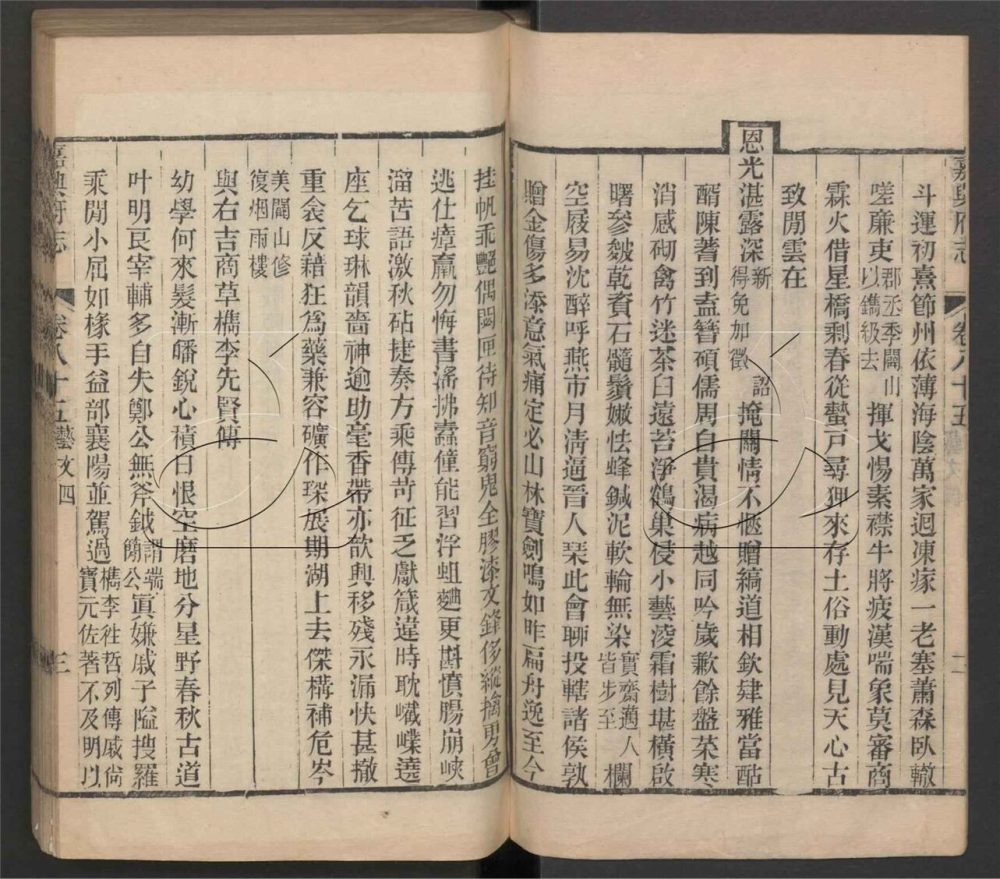 嘉興府志
卷八十五
二
斗運初熹節州依薄海陰萬家迴凍瘃一老塞蕭森臥轍
嗟廉吏郡丞季閬山以鐫級去揮戈惕素襟牛將疲漢喘象莫審商
霖火借星橋剩春從蟄戸尋狎來存土俗動處見天心古
致閒雲在
恩光湛露深新詔得免加徵掩關情不愜贈縞道相欽肄雅當酤
醑陳蓍到盍簪碩儒周自貴渴病越同吟歲歉餘盤菜寒
消感砌禽竹迷茶臼遠苔淨鶴巢侵小藝淩霜樹堪橫啟
曙參皴乾資石髓鬚嫩怯蜂鍼泥軟輪無染實齋邁人皆步至欄
空屐易沈醉呼燕市月淸逼晉人琹此會聊投轄諸侯孰
贈金傷多添意氣痛定必山林寶劍鳴如昨扁舟逸至今
挂帆乖艷偶闋匣待知音窮鬼全膠漆文鋒侈縱擒勇曾
逃仕瘴羸勿悔書滛拂蠹僮能習浮蛆麯更斟慎腸崩峽
溜苦語激秋砧捷奏方乘傳苛征乏獻箴違時耽巇嶫遶
座乞球琳韻嗇神逾助毫香帶亦歆興移殘永漏快甚撤
重衾反藉狂爲藥兼容礦作琛展期湖上去傑構補危岑
美閬山修復烟雨樓
與右吉商草檇李先賢傳
幼學何來髮漸皤銳心積日恨空磨地分星野春秋古道
叶明良宰輔多自失鄭公無斧鉞謂端簡公寘嫌戚子隘搜羅
檇李徃哲列傳戚尙寶元佐著不及明以
乘閒小屈如椽手益部襄陽並駕過
嘉興府志
卷八十五藝文四
三